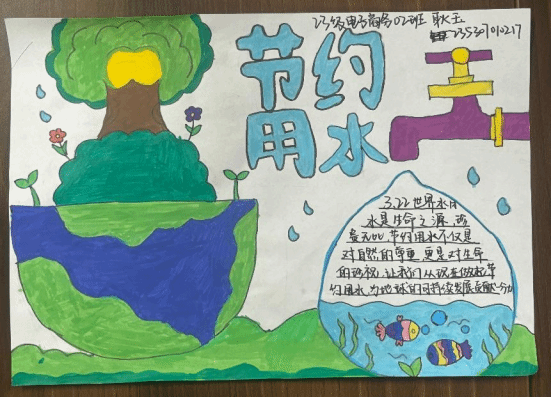 23级电子商务02班 耿玉
235307010217
节约
用水
3.22世界水日
水是生命之源
节约用水不仅是
对自然的尊重,更是对生命
的珍视,让我们从现在做起,节
约用水,为地球的可持续发展贡献一份力